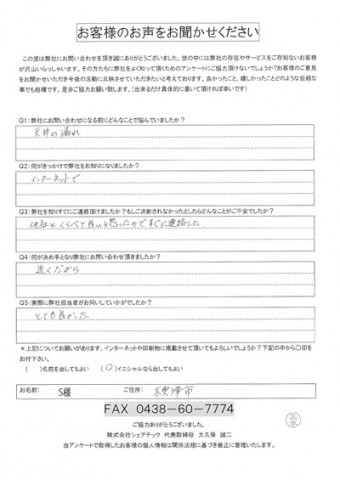 お客様のお声をお聞かせください
この度は弊社にお問い合わせを頂き誠にありがとうございました。世の中には弊社の存在やサービスをご存知ないお客様
が沢山いらっしゃいます。その方たちに弊社をよく知って頂くためのアンケートにご協力頂けないでしょうか？お客様のご意見
をお聞かせいただき今後の活動に反映させていただきたいと考えております。良かったこと、嬉しかったことどのような些細な
事でも結構です。是非ご協力お願い致します。（出来るだけ具体的に書いて頂ければ幸いです）
Q1：弊社にお問い合わせになる前にどんなことで悩んでいましたか？
天井の漏れ
Q2：何がきっかけで弊社をお知りになりましたか？
インターネットで
Q3：弊社を知りすぐにご連絡頂けましたか？もしご決断されなかったとしたらどんなことがご不安でしたか？
他社と、くらべて良いと思ったのですぐに連絡した
Q4：何が決め手となり弊社にお問い合わせ頂きましたか？
近くだから
Q5：実際に弊社担当者がお伺いしていかがでしたか？
とても良かった
＊上記についてお願いがあります。インターネットや印刷物に掲載させて頂いてもよろしいでしょうか？下記の中から○印を
お付下さい。
（　）名前を出してもよい　（○）イニシャルなら出してもよい
お名前：　S様　ご住所：　木更津市
FAX 0438-60-7774
ご協力ありがとうございました。
株式会社シェアテック 代表取締役 大久保 誠二
当アンケートで取得したお客様の個人情報は関係法規に基づき厳正に管理いたします。